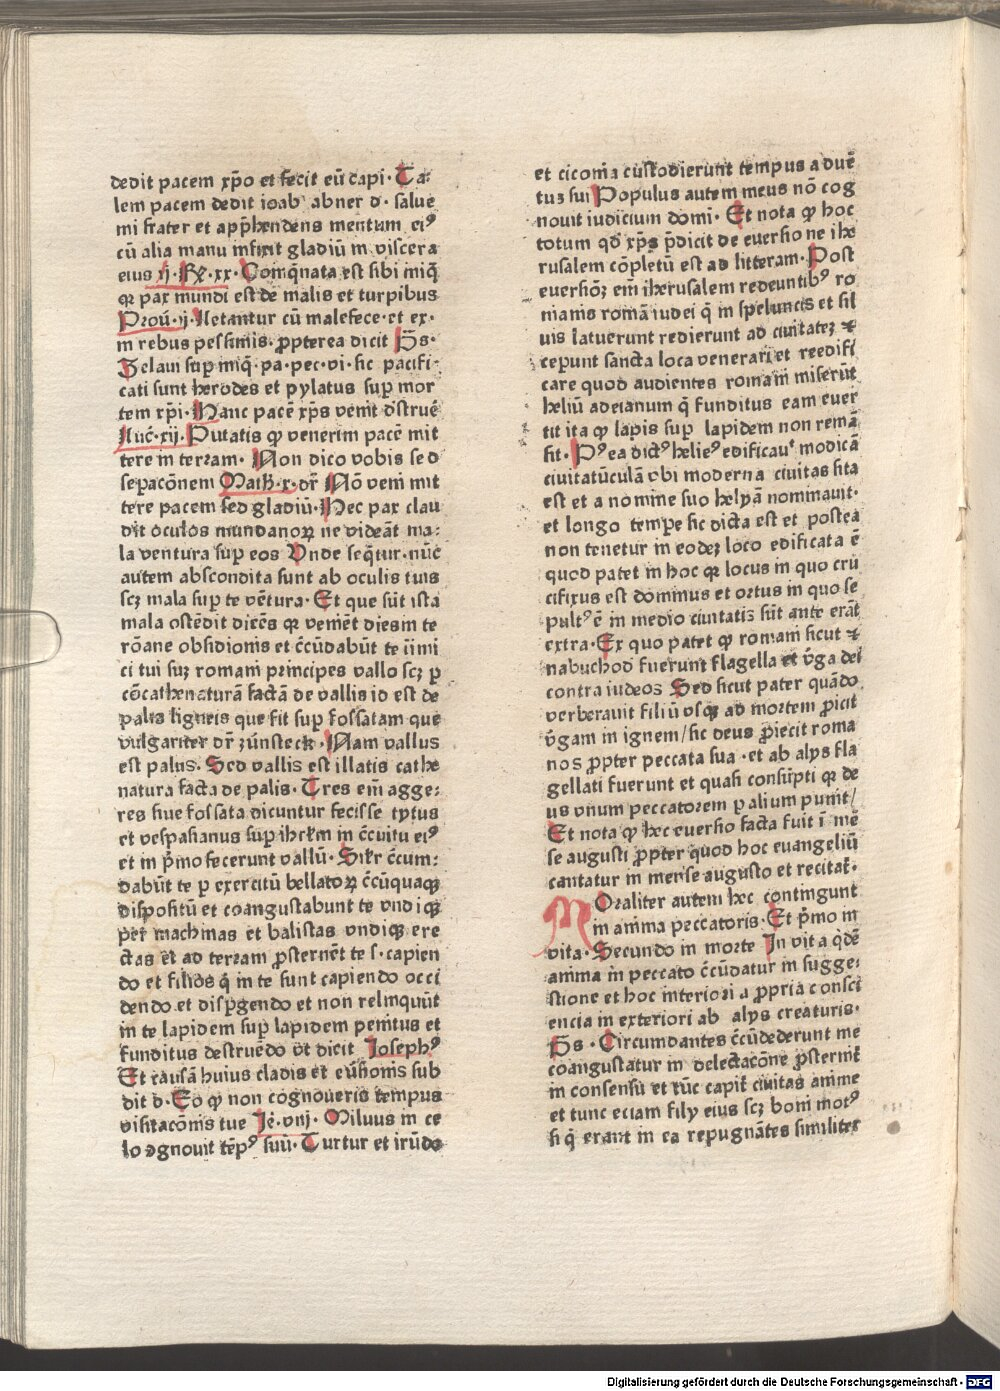 dedit pacem xp̄o et fecit eū capi · Ta⸗
lem pacem dedit ioab abner d · salue
mi frater et app̄hendens mentum eiꝰ
cū alia manu infixit gladiū in viscera
eius ij · Rꝭ · xx · Coinq̄nata est sibi miq̄
qꝛ pax mundi est de malis et turpibus
Prou̅ · ij · Letantur cū malefece · et ex ·
in rebus pessimis · ꝓpterea dicit Ps̄ ·
Zelaui suꝑ iniq̄ · pa · pec · vi · sic pacifi⸗
cati sunt herodes et pylatus suꝑ mor
tem xp̄i · Hanc pacē xp̄s venit dʼstruē
Luc̄ · xij · Putatis ꝙ venerim pacē mit
tere in terram · Non dico vobis sed
sepacōnem Math̄ · x · dr̄ Nō veni mit
tere pacem sed gladiū · Hec pax clau
dit oculos mundanoꝝ ne videāt ma⸗
la ventura suꝑ eos Vnde seq̄tur · nūc
autem abscondita sunt ab oculis tuis
scꝫ mala suꝑ te vētura · Et que sūt ista
mala ostēdit dicēs qꝛ veniēt dies in te
rōane obsidionis et c̄cūdabūt te iīmi
ci tui suꝫ romani principes vallo scꝫ ꝑ
cōcathenaturā factā de vallis id est de
palis ligneis que fit suꝑ fossatam que
vulgariter dr̄ zūnsteck · Nam vallus
est palus · Sed vallis est illatis cathe
natura facta de palis · Tres em̄ agge⸗
res siue fossata dicuntur fecisse tytus
et vespasianus suꝑ ihrl̄m in c̄cuitu eiꝰ
et in p̄mo fecerunt vallū · Silꝛ c̄cum⸗
dabūt te ꝑ exercitū bellatoꝝ c̄cūquaqꝫ
dispositū et coangustabunt te vndiqꝫ
per machinas et balistas vndiqꝫ ere
ctas et ad terram ꝓsternēt te s · capien
do et filios q̄ in te sunt capiendo occi
dendo et disꝑgendo et non relinquūt
in te lapidem suꝑ lapidem penitus et
funditus destruēdo vt dicit Iosephꝰ
Et causā huius cladis et eūsionis sub
dit d · Eo ꝙ non cognoueris tempus
visitacōnis tue Ie̅ · viij · Miluus in ce
lo ognouit tēpꝰ suū · Turtur et irūdo
et ciconia custodierunt tempus aduē
tus sui Populus autem meus nō cog
nouit iudicium domi · Et nota ꝙ hoc
totum qd̄ xp̄s p̄dicit de euersione ihe
rusalem cōpletū est ad litteram · Post
euersiōꝫ em̄ iherusalem redeuntibꝰ ro
nianis romā iudei q̄ in speluncis et sil
uis latuerunt redierunt ad ciuitateꝫ ⁊
ceperunt sancta loca venerari et reedifi
care quod audientes romani miserūt
heliū adeianum q̄ funditus eam euer
tit ita ꝙ lapis suꝑ lapidem non remā
sit · Pꝰea dictꝰ heliꝰ edificauᵗ modicā
ciuitatūculā vbi moderna ciuitas sita
est et a nomine suo helyā nominauit ·
et longo tempe sic dicta est et postea
non tenetur in eodeꝫ loco edificata ē
quod patet in hoc qꝛ locus in quo cru
cifixus est dominus et ortus in quo se
pultꝰ ē in medio ciuitatis sūt ante erāt
extra · Ex quo patet ꝙ romani sicut ⁊
nabuchod fuerunt flagella et v̄ga dei
contra iudeos Sed sicut pater quādo
verberauit filiū vsqꝫ ad mortem ꝓicit
v̄gam in ignem / sic deus ꝓiecit roma
nos ꝓpter peccata sua · et ab alijs fla
gellati fuerunt et quasi consūpti qꝛ de
us vnum peccatorem ꝑ alium punit /
Et nota ꝙ hec euersio facta fuit ī mē
se augusti ꝓpter quod hoc euangeliū
cantatur in mense augusto et recitat̄ ·
Moraliter autem hec contingunt
in anima peccatoris · Et p̄mo in
vita · Secundo in morte In vita q̄dē
anima in peccato c̄cūdatur in sugge⸗
stione et hoc interiori a ꝓpria consci
encia in exteriori ab alys creaturis ·
Ps̄ · Circumdantes c̄cūdederunt me
coangustatur in delectacōne ꝓsternit̄
in consensū et tūc capit̄ ciuitas anime
et tunc eciam filij eius scꝫ boni motꝰ
si q̄ erant in ea repugnātes similiter
Digitalisierung gefördert durch die Deutsche Forschungsgemeinschaft · DFG